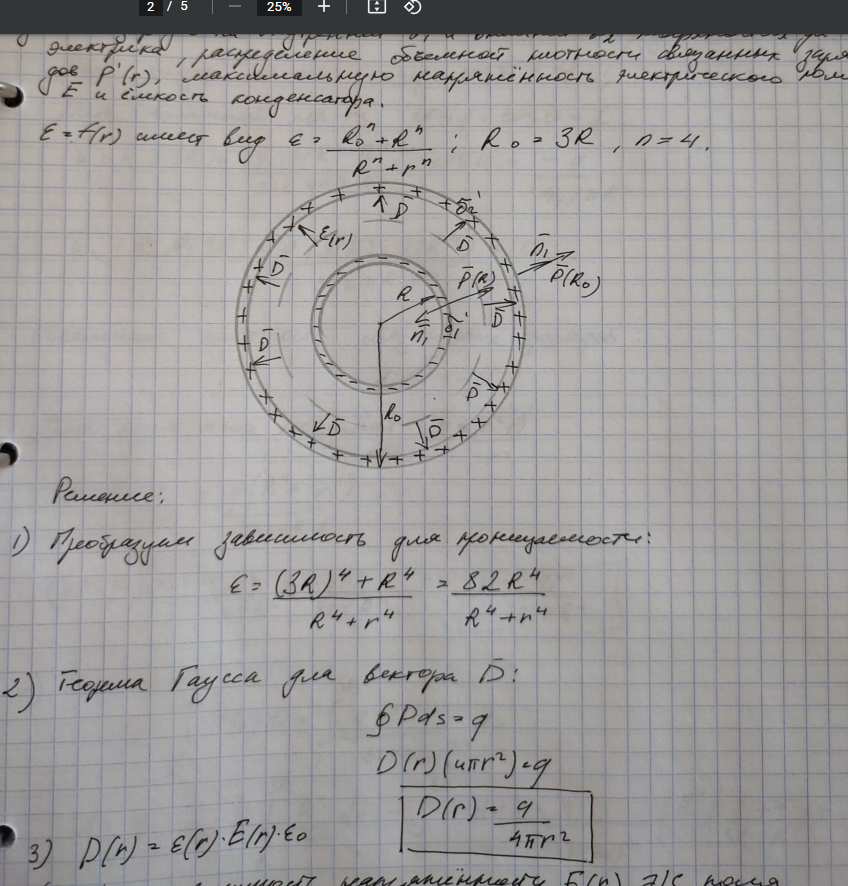 2 / 5 − 25% +
электрика, распределение объёмной плотности связанных заря
дов ρ'(r), максимальную напряжённость электрического пол
E̅ и ёмкость конденсатора.
ε = f(r) имеет вид ε = (R₀ⁿ + Rⁿ)/(Rⁿ + rⁿ) ; R₀ = 3R , n = 4.
D̅ σ₂'
ε(r) D̅ n̅₁
D̅ P̅(R) P̅(R₀)
R D̅
D̅ n̅₁ σ₁'
D̅
R₀
D̅ D̅
Решение:
1) Преобразуем зависимость для проницаемости:
ε = ((3R)⁴ + R⁴)/(R⁴ + r⁴) = 82R⁴/(R⁴ + r⁴)
2) Теорема Гаусса для вектора D̅:
∮Dds = q
D(r)(4πr²) = q
D(r) = q/(4πr²)
3) D(r) = ε(r)·E(r)·ε₀
напряжённости E(r) эл/с поля